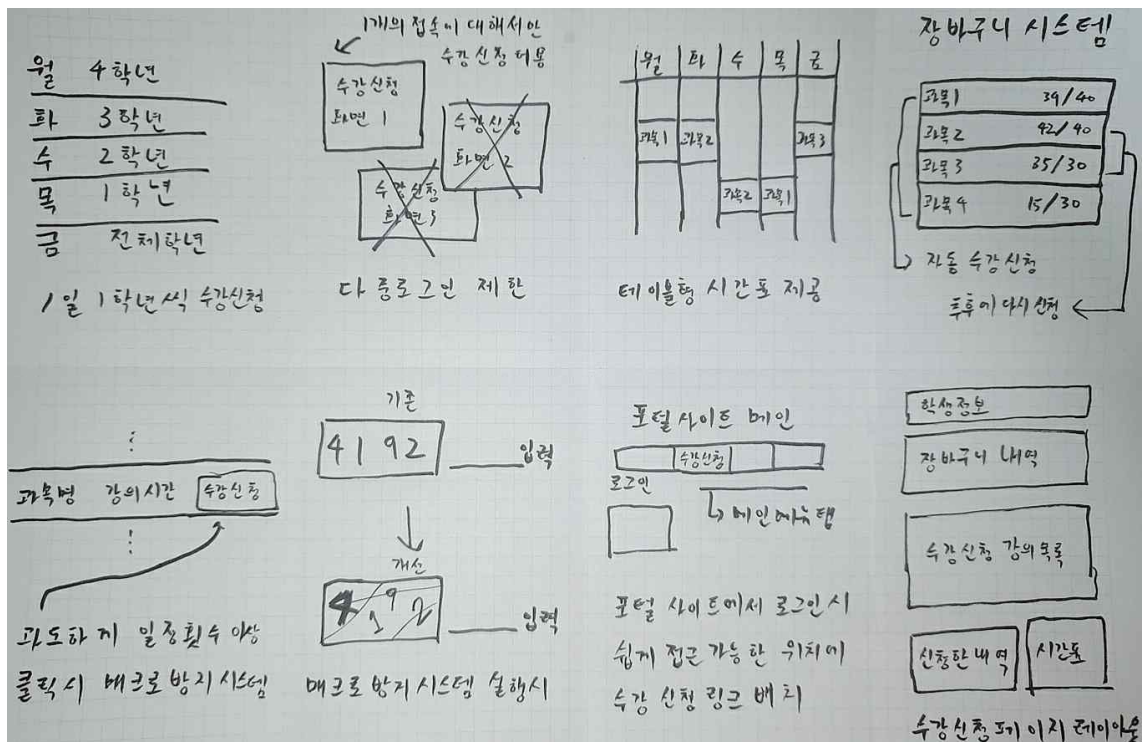 월 4학년
화 3학년
수 2학년
목 1학년
금 전체학년
1일 1학년씩 수강신청
1개의 접속에 대해서만
수강신청 허용
수강신청
화면 1
수강신청
화면 2
수강신청
화면 3
다중로그인 제한
월 화 수 목 금
과목1 과목2 과목3
과목2 과목1
테이블형 시간표 제공
장바구니 시스템
과목1 39/40
과목2 42/40
과목3 35/30
과목4 15/30
자동 수강신청
추후에 다시 신청
과목명 강의시간 수강신청
과도하게 일정횟수 이상
클릭시 매크로방지시스템
기존
4192
입력
개선
4 1 9 2
입력
매크로방지시스템 실행시
포털사이트 메인
수강신청
로그인
메인메뉴탭
포털 사이트에서 로그인시
쉽게 접근 가능한 위치에
수강 신청 링크 배치
학생정보
장바구니 내역
수강신청 강의목록
신청한내역 시간표
수강신청페이지 레이아웃